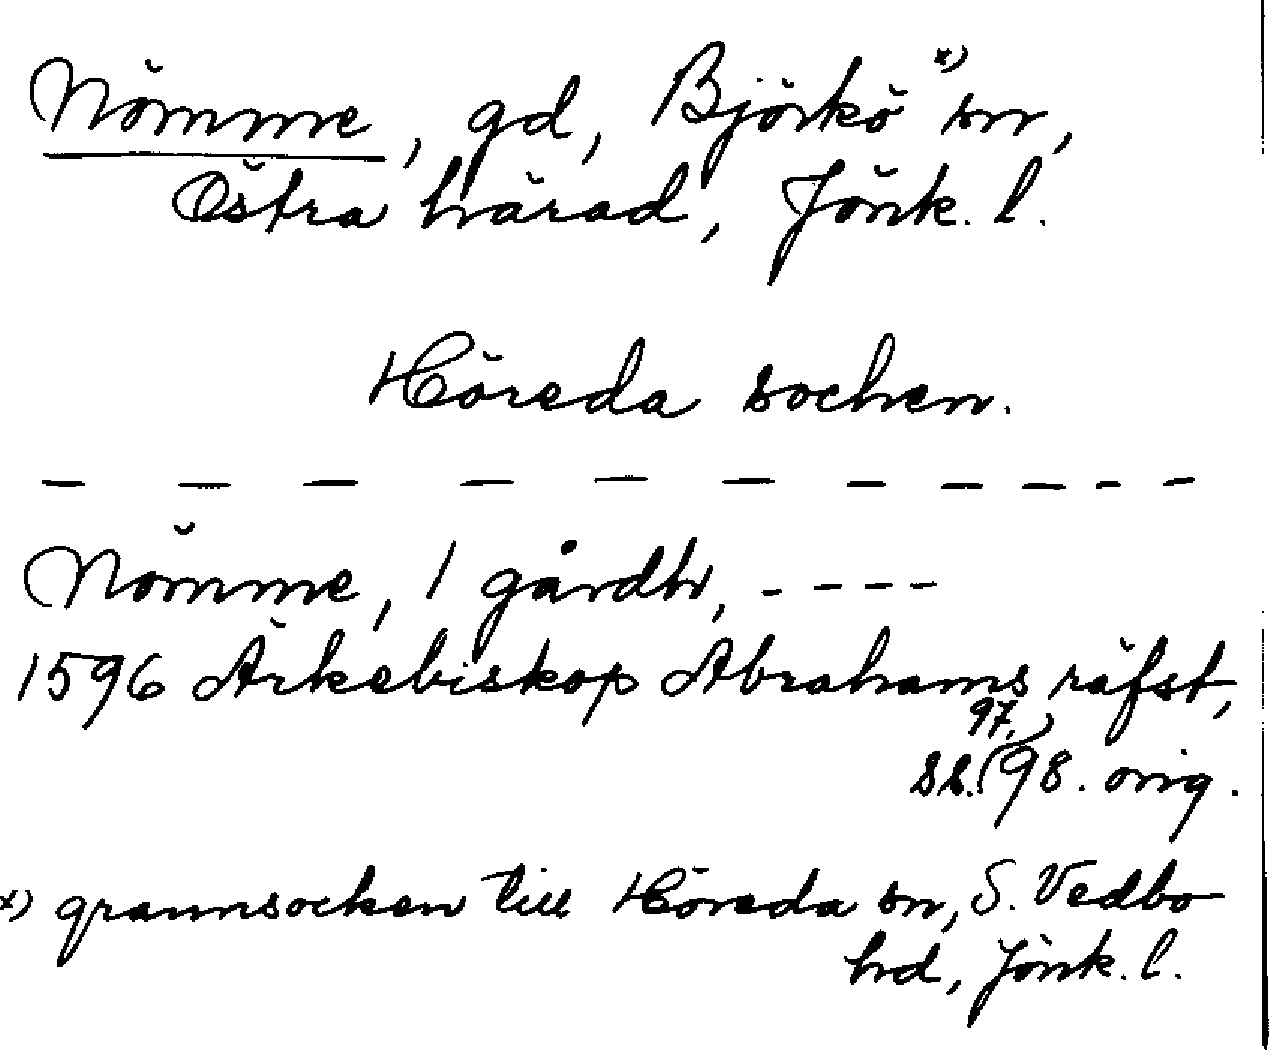 Nömme, gd, Björkö x) sn,
Östra härad, Jönk. l.
Höreda socken.
— — — — — — — — — — —
Nömme, 1 gårdbr, - - - -
1596 Ärkebiskop Abrahams räfst,
97.)
ss.(98. orig.
x) grannsocken till Höreda sn, S. Vedbo
hd, Jönk. l.